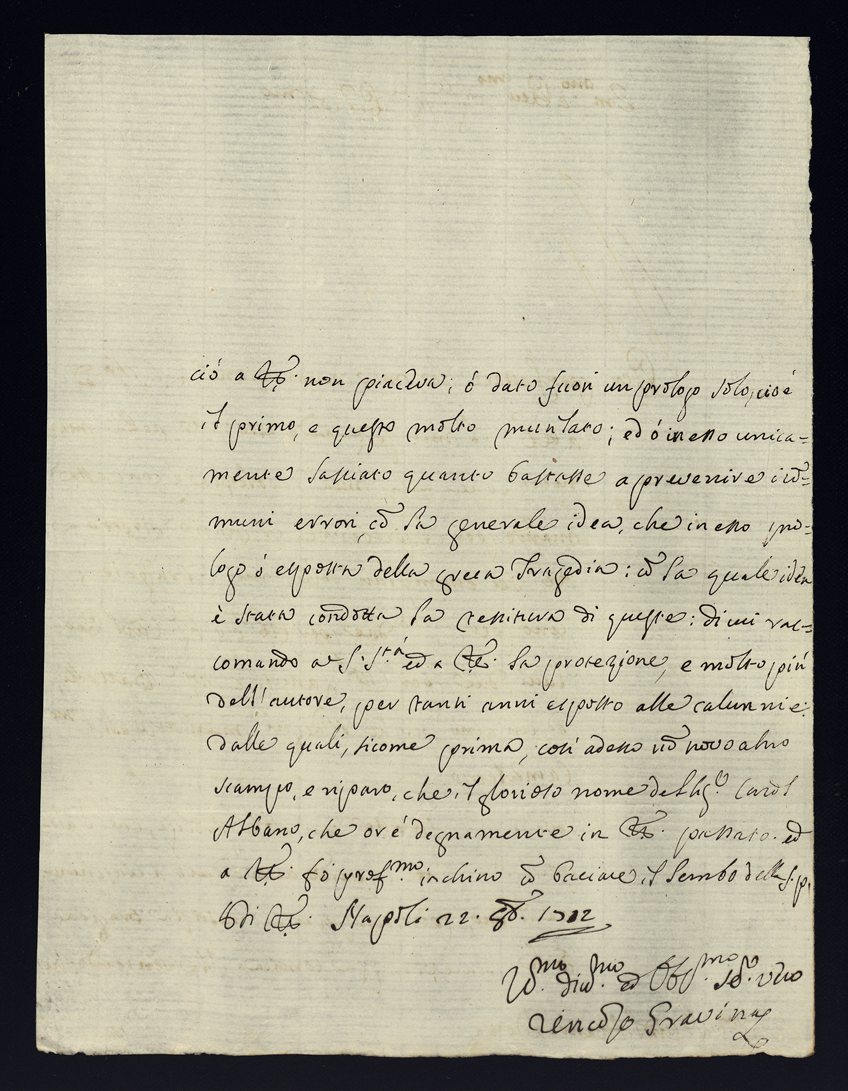 ció a V.B. non piaceva; ó dato fuori un prologo solo, cioé
il primo, e questo molto mutilato; ed ó in esso unica=
mente lassiato quanto bastasse a prevenire i cõ=
muni errori, cõ la generale idea, che in esso pro=
logo ó esposta della greca Tragedia: cõ la quale idea
è stata condotta la tessitura di queste: di cui rac=
comando a S. S.tá ed a V.B. la protezione, e molto piú
dell'autore, per tanti anni esposto alle calunnie:
dalle quali, sicome prima, cosí adesso nõ trovo altro
scampo, e riparo, che il glorioso nome del Sig.r Card.l
Albano, che or é degnamente in V.B. passato. ed
a V.B. fó prof.mo inchino cõ baciare il lembo della S. p.
di V.B. Napoli 22. 1712
Um.mo div.mo ed Obb.mo Se.r vero
Vincenzo Gravina